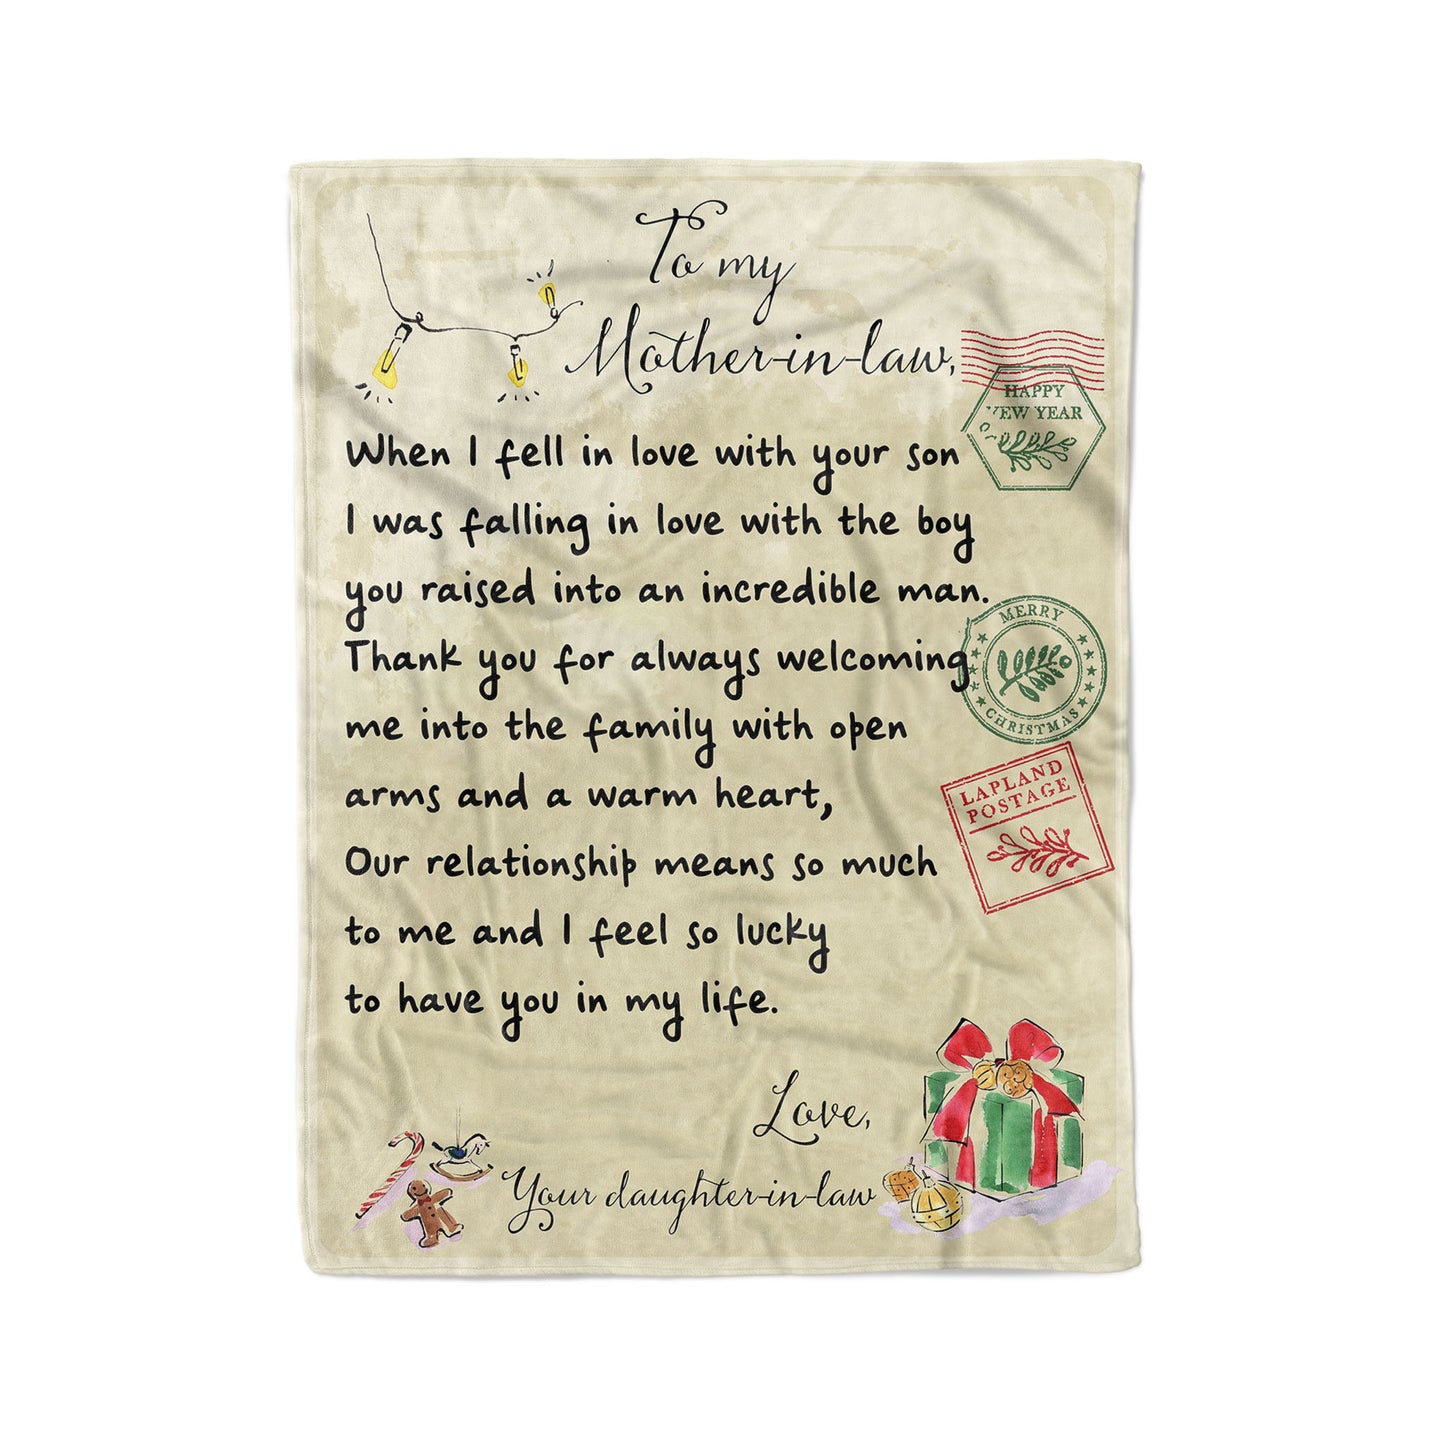 To my
Mother-in-law,
HAPPY
NEW YEAR
When I fell in love with your son
I was falling in love with the boy
you raised into an incredible man.
MERRY
Thank you for always welcoming
CHRISTMAS
me into the family with open
LAPLAND
POSTAGE
arms and a warm heart,
Our relationship means so much
to me and I feel so lucky
to have you in my life.
Love,
Your daughter-in-law